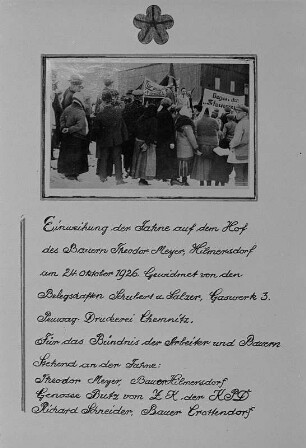 Gegen die
Einweihung der Fahne auf dem Hof
des Bauern Theodor Meyer, Hilmersdorf
am 24. Oktober 1926. Gewidmet von den
Belegschaften Schubert u. Salzer, Gaswerk 3.
Peuvag Druckerei Chemnitz.
Für das Bündnis der Arbeiter und Bauern
Stehend an der Fahne:
Theodor Meyer, Bauer Hilmersdorf
Genosse Butz vom Z.K. der KPD
Richard Schneider, Bauer Crottendorf